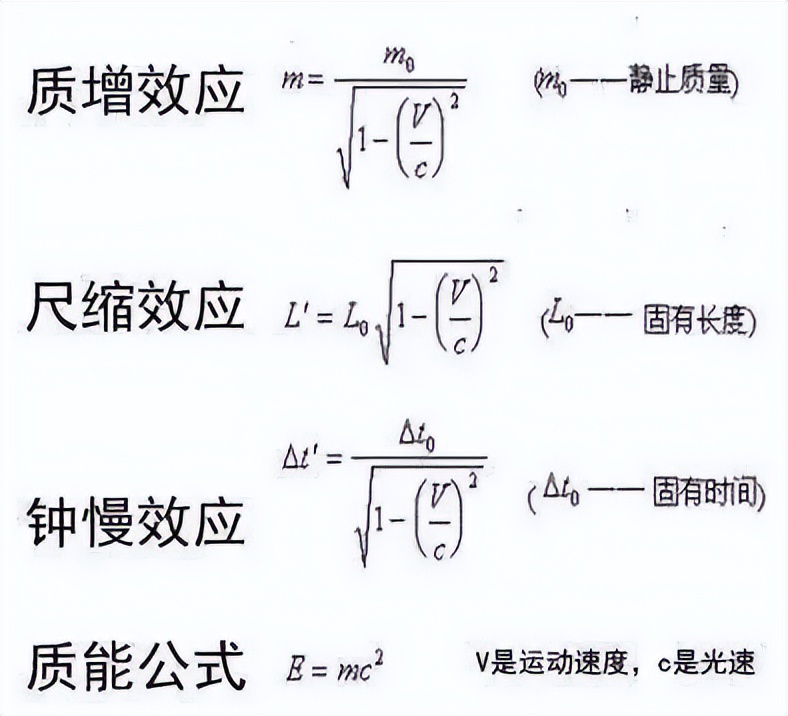 质增效应 m = m₀ / √(1 − (V/c)²) (m₀——静止质量)
尺缩效应 L′ = L₀√(1 − (V/c)²) (L₀—— 固有长度)
钟慢效应 Δt′ = Δt₀ / √(1 − (V/c)²) (Δt₀ —— 固有时间)
质能公式 E = mc² V是运动速度，c是光速